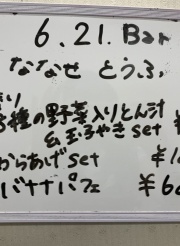 6.21. Bar
ななせ とうふ
種の野菜入りとん汁
& 玉子やき set ¥
からあげ set ¥1
バナナパフェ ¥6